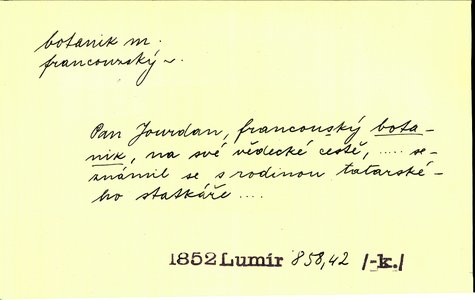 botanik m.
francouzský ~.
Pan Jourdan, francouský bota-
nik, na své vědecké cestě, ..... se-
známil se s rodinou tatarské-
ho statkáře ....
1852 Lumír 858,42 /-k./